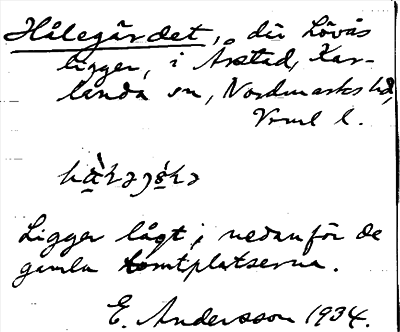 Hålegärdet, där Lövås
ligger, i Årstad, Kar-
landa sn, Nordmarks hd,
Vrml l.
Ligger lågt; nedanför de
gamla tomtplatserna.
E. Andersson 1934.